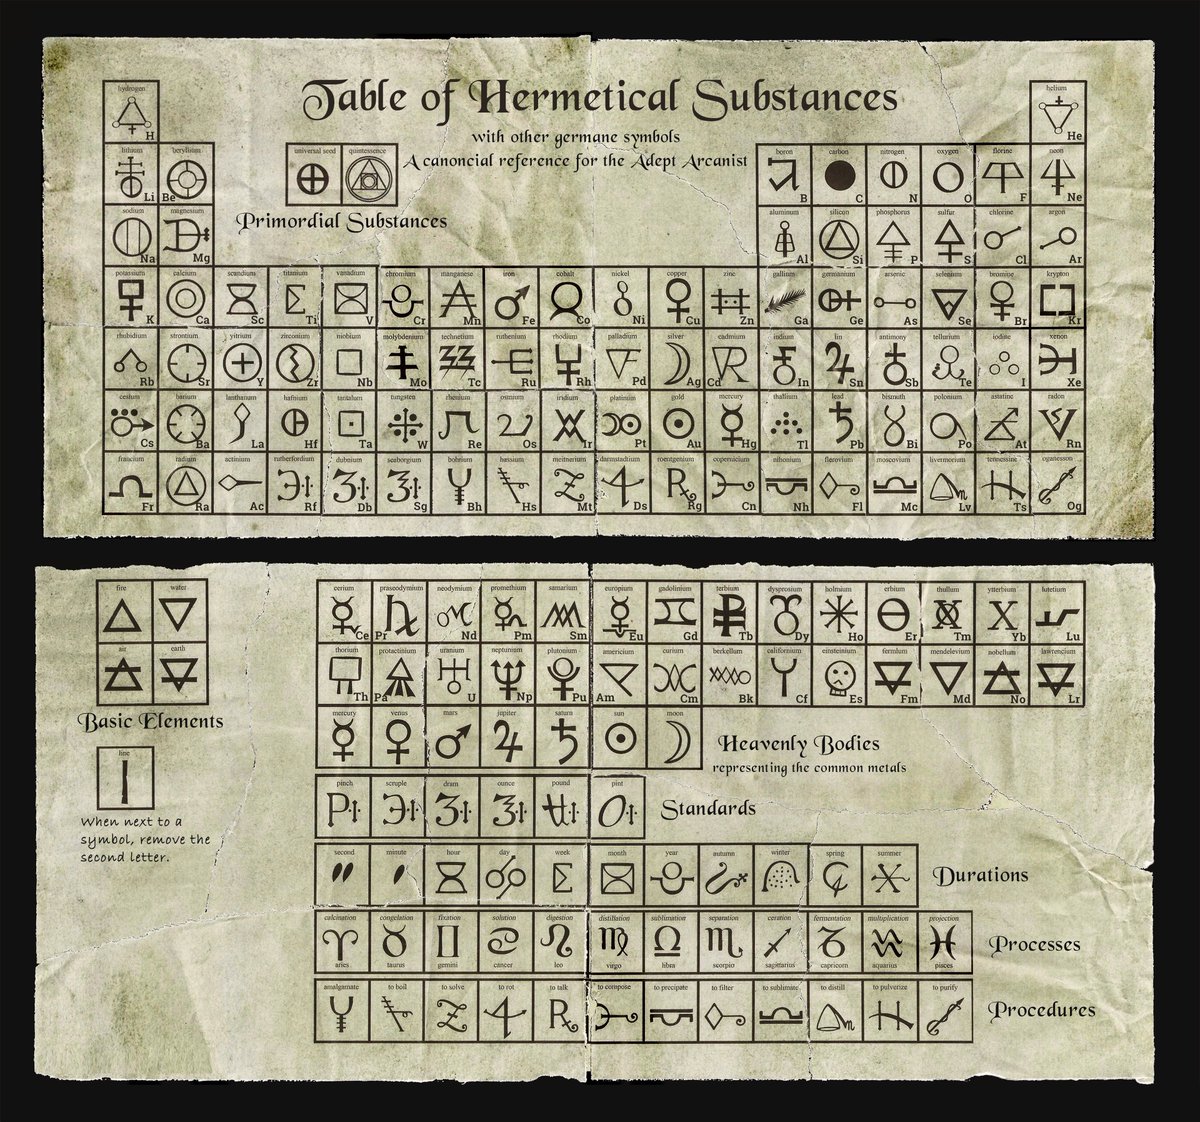 Table of Hermetical Substances
with other germane symbols
A canoncial reference for the Adept Arcanist
hydrogen H
helium He
lithium Li
berylium Be
universal seed
quintessence
Primordial Substances
boron B
carbon C
nitrogen N
oxygen O
florine F
neon Ne
sodium Na
magnesium Mg
aluminum Al
silicon Si
phosphorus P
sulfur S
chlorine Cl
argon Ar
potassium K
calcium Ca
scandium Sc
titanium Ti
vanadium V
chromium Cr
manganese Mn
iron Fe
cobalt Co
nickel Ni
copper Cu
zinc Zn
gallium Ga
germanium Ge
arsenic As
selenium Se
bromine Br
krypton Kr
rhubidium Rb
strontium Sr
yitrium Y
zirconium Zr
niobium Nb
molybdenum Mo
technetium Tc
ruthenium Ru
rhodium Rh
palladium Pd
silver Ag
cadmium Cd
indium In
tin Sn
antimony Sb
tellurium Te
iodine I
xenon Xe
cesium Cs
barium Ba
lanthanum La
hafnium Hf
tantalum Ta
tungsten W
rhenium Re
osmium Os
iridium Ir
platinum Pt
gold Au
mercury Hg
thallium Tl
lead Pb
bismuth Bi
polonium Po
astatine At
radon Rn
francium Fr
radium Ra
actinium Ac
rutherfordium Rf
dubnium Db
seaborgium Sg
bohrium Bh
hessium Hs
meitnerium Mt
darmstadtium Ds
roentgenium Rg
copernicium Cn
nihonium Nh
flerovium Fl
moscovium Mc
livermorium Lv
tennessine Ts
oganesson Og
fire
water
air
earth
Basic Elements
line
When next to a
symbol, remove the
second letter.
cerium Ce
praseodymium Pr
neodymium Nd
promethium Pm
samarium Sm
europium Eu
gadolinium Gd
terbium Tb
dysprosium Dy
holmium Ho
erbium Er
thullum Tm
ytterbium Yb
lutetium Lu
thorium Th
protactinium Pa
uranium U
neptunium Np
plutonium Pu
americium Am
curium Cm
berkellum Bk
californium Cf
einsteinium Es
fermium Fm
mendelevium Md
nobelium No
lawrencium Lr
mercury
venus
mars
jupiter
saturn
sun
moon
Heavenly Bodies
representing the common metals
pinch
scruple
dram
ounce
pound
pint
Standards
second
minute
hour
day
week
month
year
autumn
winter
spring
summer
Durations
calcination aries
congelation taurus
fixation gemini
solution cancer
digestion leo
distillation virgo
sublimation libra
separation scorpio
ceration sagittarius
fermentation capricorn
multiplication aquarius
projection pisces
Processes
amalgamate
to boil
to solve
to rot
to talk
to compose
to precipate
to filter
to sublimate
to distill
to pulverize
to purify
Procedures